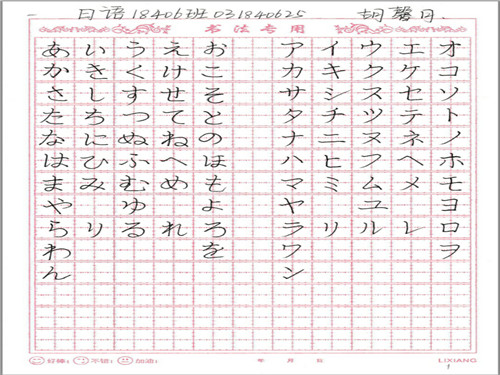 日语18406班 031840625 胡馨月.
书法专用
あ い う え お ア イ ウ エ オ
か き く け こ カ キ ク ケ コ
さ し す せ そ サ シ ス セ ソ
た ち つ て と タ チ ツ テ ト
な に ぬ ね の ナ ニ ヌ ネ ノ
は ひ ふ へ ほ ハ ヒ フ ヘ ホ
ま み む め も マ ミ ム メ モ
や ゆ よ ヤ ユ ヨ
ら り る れ ろ ラ リ ル レ ロ
わ を ワ ヲ
ん ン
好棒: 不错: 加油: 年 月 日 LIXIANG
1